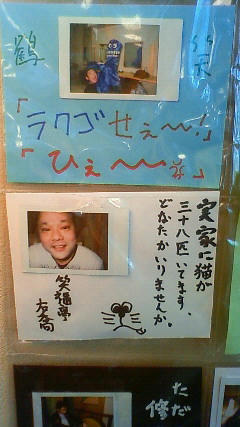 鶴
笑
「ラクゴせぇ〜!」
「ひぇ〜〜」
実家に猫が
三十八匹いてます、
どなたかいりませんか。
笑福亭
ただ
修